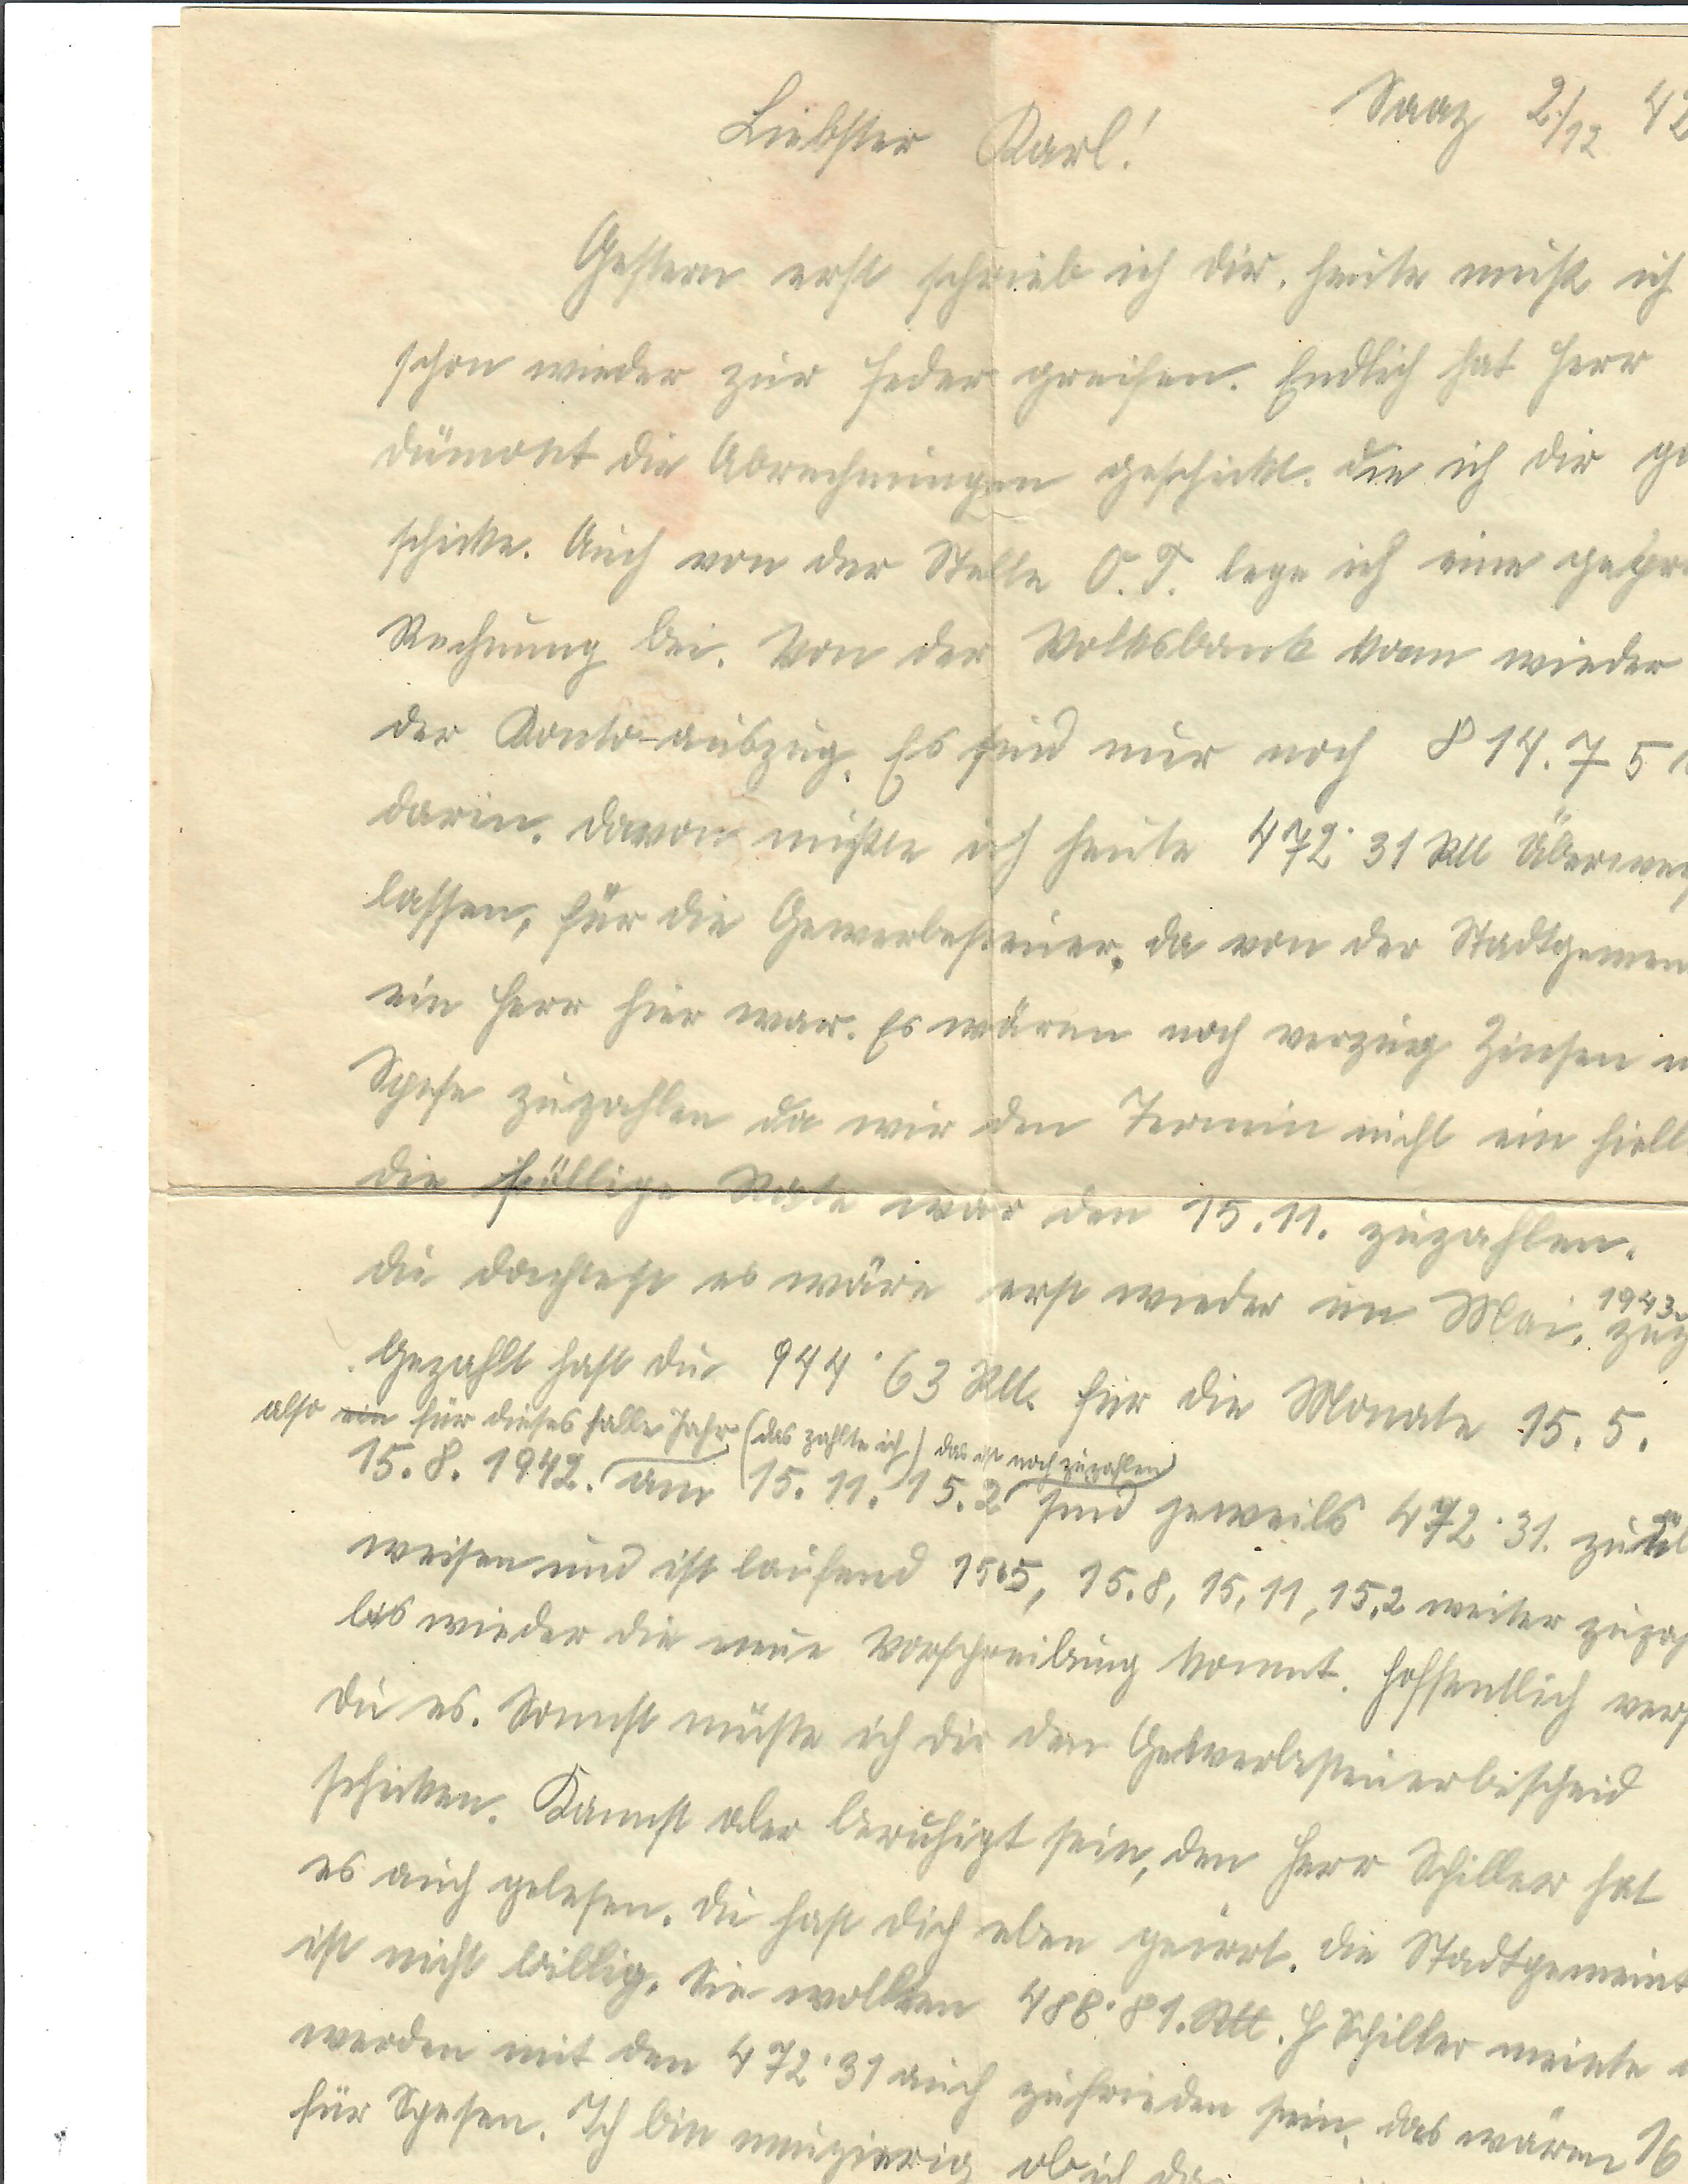 Saaz 2/12 42
Liebster Karl!
Gestern erst schrieb ich dir. heute muß ich
schon wieder zur Feder greifen. Endlich hat Herr
die Abrechnungen geschickt. die ich dir
schicke. Auch von der Stelle O. T. lege ich eine
Rechnung bei. Von der Volksbank kam wieder
der Konto-auszug. Es sind nur noch 814.75
darin. davon mußte ich heute 472·31 RM Über
lassen, für die Gewerbesteuer. da von der Stadtgemein
ein Herr hier war. Es wären noch verzug Zinsen
Spese zuzahlen da wir den Termin nicht ein hielt
die fällige Rate war den 15.11. zuzahlen.
du dachtest es wäre erst wieder im Mai. 1943
Gezahlt hast du 944·63 RM. für die Monate 15.5.
also ein für dieses halbe Jahr (das zahlte ich) das ist noch zuzahlen
15.8.1942. am 15.11. 15.2 sind jeweils 472·31. zu üb
weisen und ist laufend 15.5, 15.8, 15.11, 15.2 weiter zuzah
bis wieder die neue Vorschreibung kommt. Hoffentlich vers
du es. Sonnst müßte ich dir den Gewerbesteuerbescheid
schicken. Kannst aber beruhigt sein, den Herr Schiller hat
es auch gelesen. du hast dich eben geirrt. die Stadtgemeint
ist nicht billig. Sie wollten 488·81. RM. H Schiller meinte
werden mit den 472·31 auch zufrieden sein. das wären 16
für Spesen. Ich bin neugierig ob ich